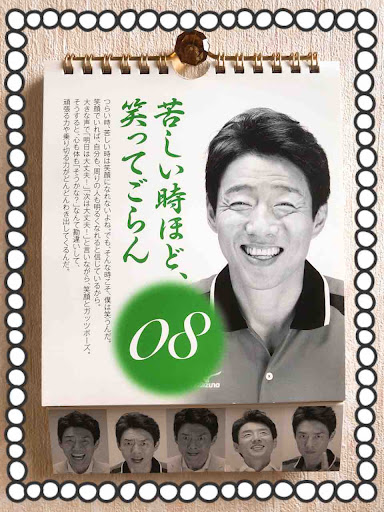 苦しい時ほど、
笑ってごらん
つらい時、苦しい時は笑顔になれないよね。でも、そんな時こそ、僕は笑うんだ。
笑顔でいれば、自分も、周りの人も明るくなれると信じているから。
大きな声で「明日は大丈夫！」「次は大丈夫！」と言いながら、笑顔とガッツポーズ。
そうすると、心も体も「そうかな？」なんて勘違いして、
頑張る力や乗り切る力がどんどんわき出してくるんだ。
08